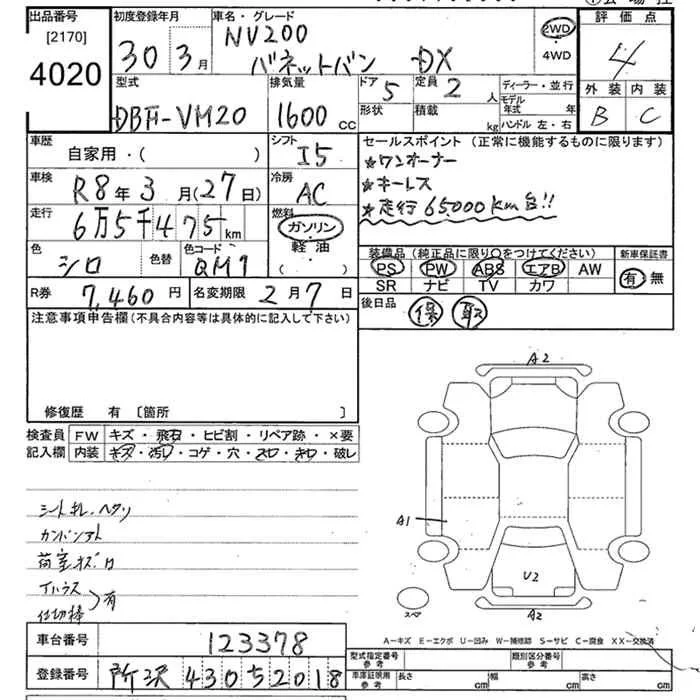 出品番号
[2170]
4020
初度登録年月
30 3月
車名・グレード
NV200
バネットバン DX
2WD
・
4WD
評価点
4
外装 内装
B C
型式
DBF-VM20
排気量
1600 cc
ドア 5
定員 2 人
形状
積載 kg
ディーラー・並行
モデル年式 年
ハンドル 左・右
車歴
自家用・( )
シフト
I5
セールスポイント (正常に機能するものに限ります)
★ワンオーナー
★キーレス
★走行65000km台!!
車検
R8年3月(27日)
冷房
AC
走行
6万5千475km
燃料
ガソリン
軽油
・
( )
色
シロ
色替
色コード
QM1
装備品 (純正品に限り○をつけてください)
PS PW ABS エアB AW
SR ナビ TV カワ
新車保証書
有 無
R券 7,460円
名変期限 2月7日
後日品
保 取
注意事項申告欄 (不具合内容等は具体的に記入して下さい)
修復歴 有 [箇所 ]
検査員
記入欄
FW キズ・飛石・ヒビ割・リペア跡・×要
内装 キズ・汚レ・コゲ・穴・スレ・キレ・破レ
シートキレ・ヘタリ
荷室キズ
仕切棒
有
A2
A1
U2
A2
スペア
A-キズ E-エクボ U-凹み W-補修跡 S-サビ C-腐食 XX-交換済
車台番号 123378
登録番号 所沢 430 5 2018
型式指定番号
参考
類別区分番号
参考
車庫証明用
参考
長さ cm
幅 cm
高さ cm